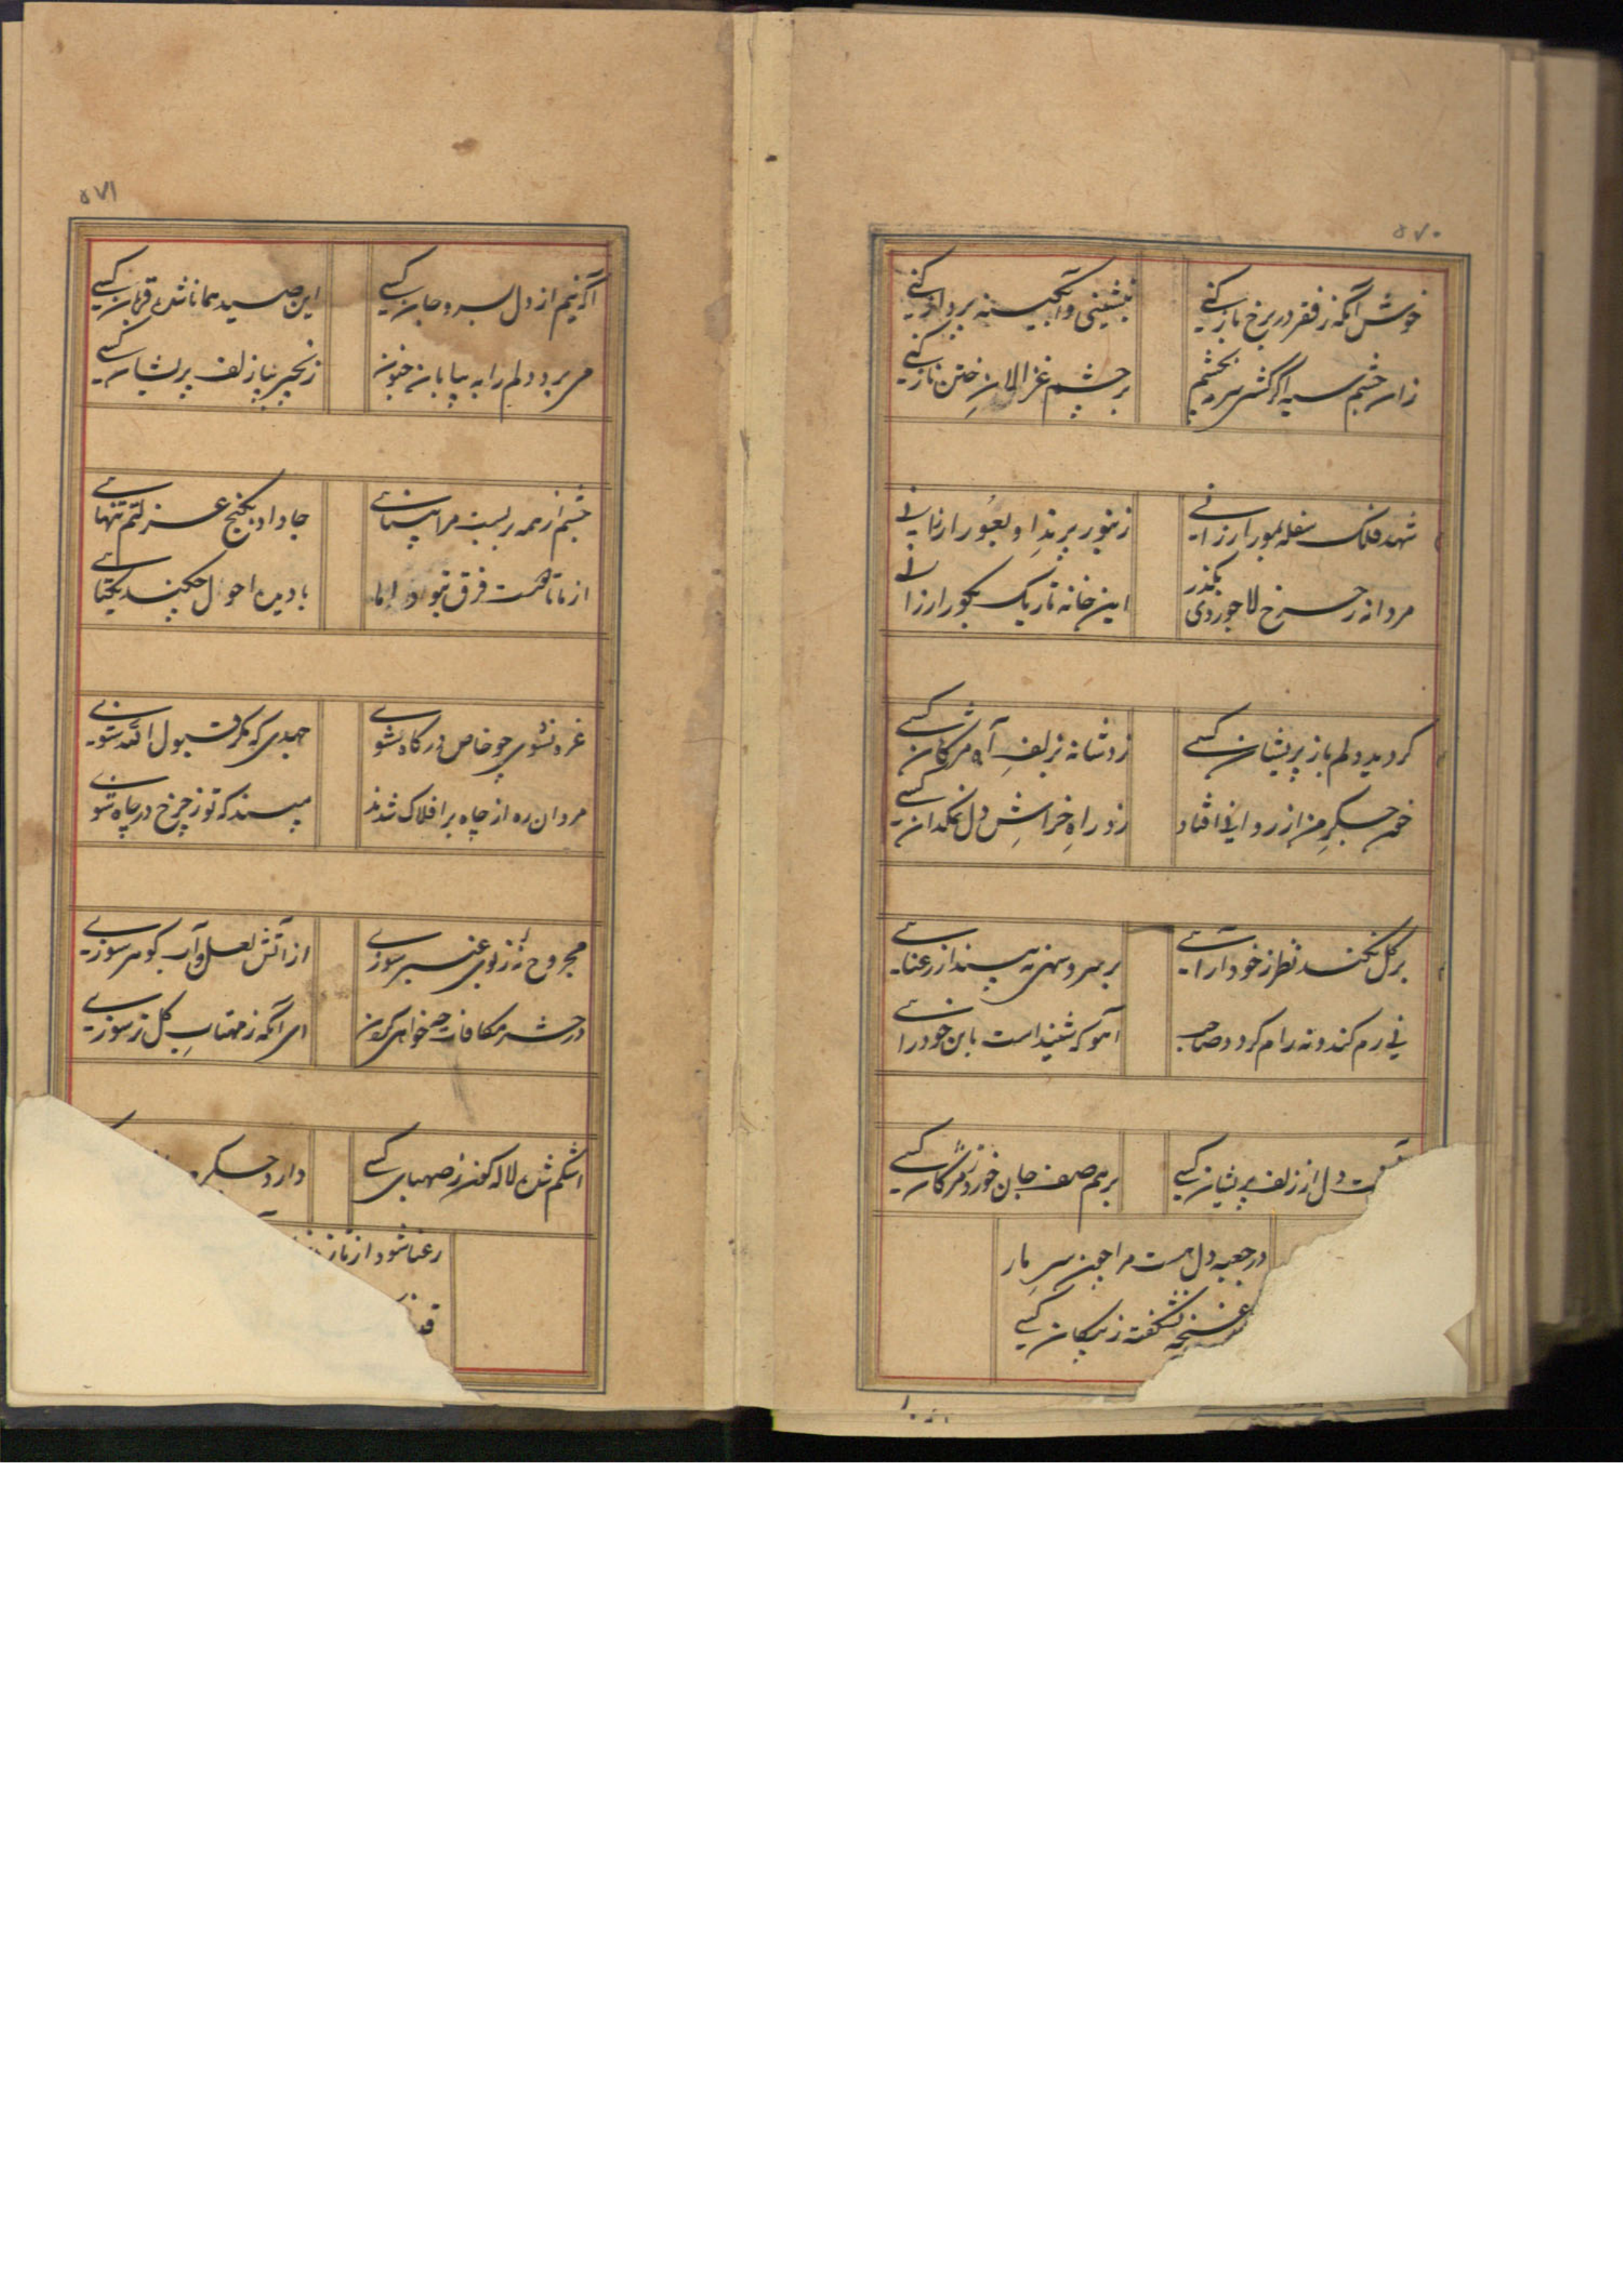 ۵۷۰
خوش آنکه ز فقر در برخ باز کنی
بنشینی و آبگینه پرداز کنی
زان چشم سیه اگر کشی سرمه بچشم
بر چشم غزالان ختن ناز کنی
شهد فلک سفله بمور ارزانی
زنبور پرند او بعور ارزانی
مردانه ز چرخ لاجوردی بگذر
این خانه تاریک بگور ارزانی
گردید دلم باز پریشان کسی
زد شانه بزلف آه مژگان کسی
خون جگر من از روانی افتاد
زد راه خراش دل نمکدان کسی
بر گل نکند نظر ز خود آرائی
بر سرو سهی نه بیند از رعنائی
نی رم کند و نه رام گردد صاحب
آهو که شنیداست باین خود رائی
دل از زلف پریشان کسی
برهم صف جان خورد ز مژگان کسی
در جعبه دل هست مرا چون سر مار
غنچه نشکفته ز پیکان کسی
۵۷۱
آگه نیم از دل بسر و جان کسی
این صید همانا شده قربان کسی
می برد دلم را به بیابان جنون
زنجیر بپا زلف پریشان کسی
چشم از همه بر بست مرا بینائی
جا داد بکنج عزلتم تنهائی
از ما تا هست فرق نبود اما
با دیده احول چکند یکتائی
غره نشوی چو خاص درگاه شوی
جهدی که مگر قبول الله شوی
مردان ره از چاه بر افلاک شدند
مپسند که تو ز چرخ در چاه شوی
مجروح نه زبوی عنبر سوزی
از آتش لعل و آب گوهر سوزی
در حشر مکافات چه خواهی کردن
ای آنکه ز مهتاب گل تر سوزی
اشکم شده لاله گون ز صهبای کسی
دارد جگر
رعنا شود از ناز